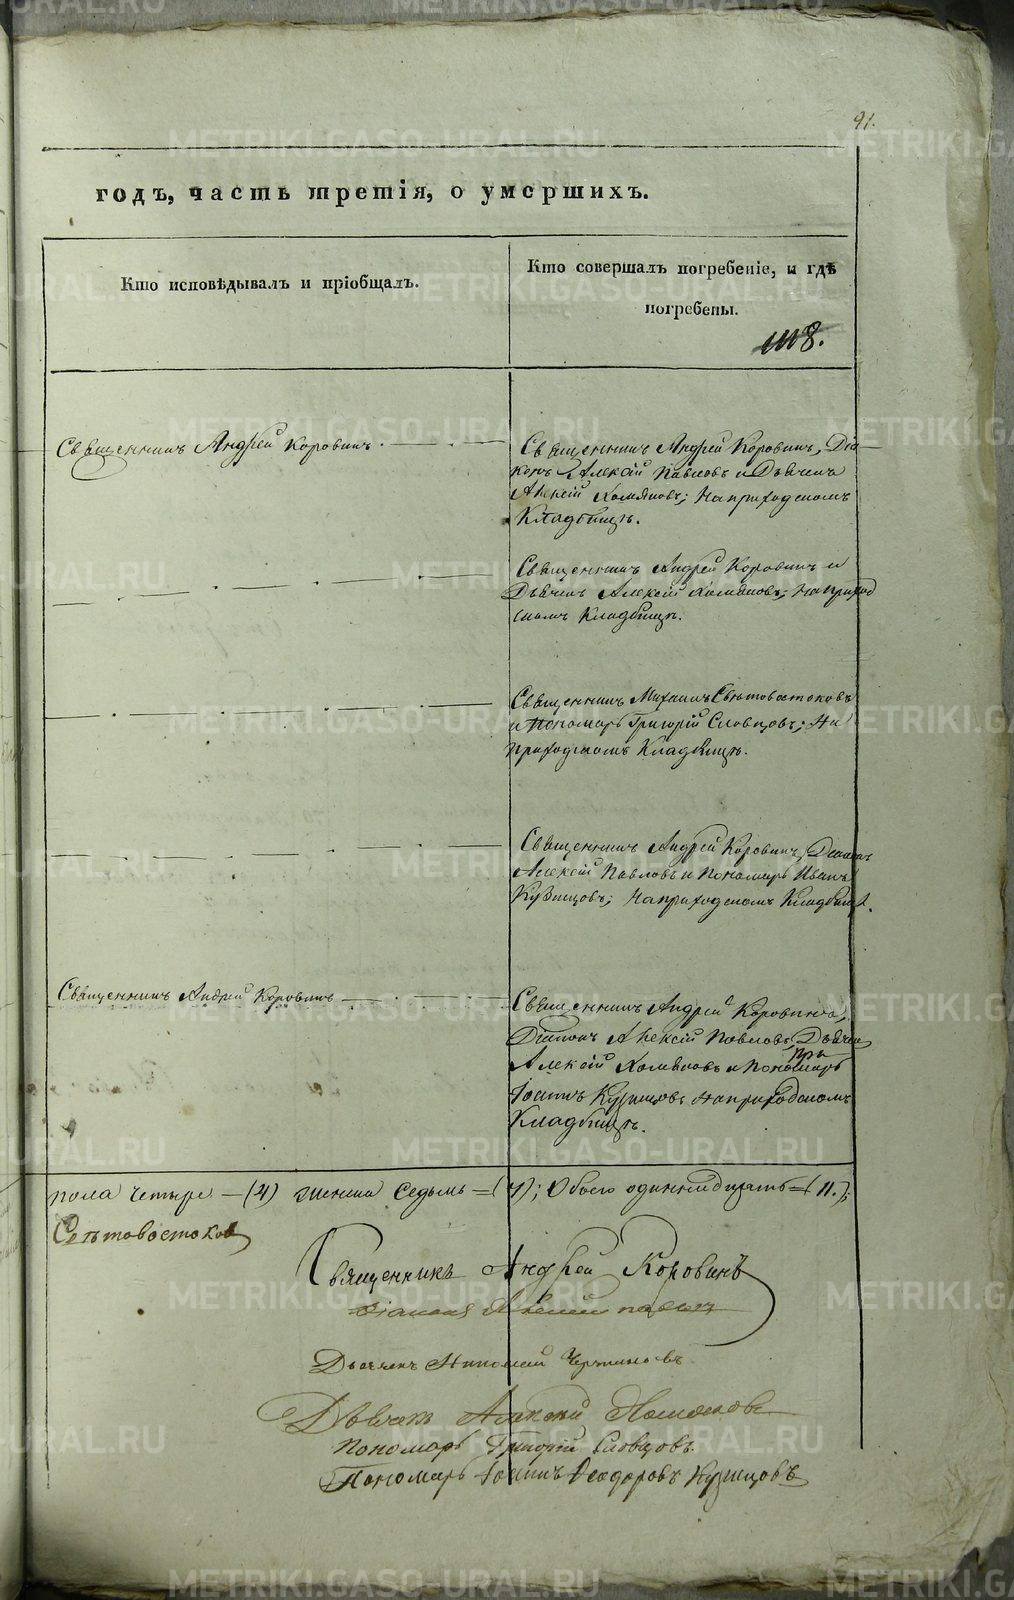 91.
годъ, часть третія, о умершихъ.
Кто исповѣдывалъ и пріобщалъ.
Кто совершалъ погребеніе, и гдѣ
погребены.
Священникъ Андрей Коровинъ.
Священникъ Андрей Коровинъ, Діа-
конъ Алексій Павловъ и Дьячекъ
Алексій Хомяковъ; На приходскомъ
Кладбищѣ.
Священникъ Андрей Коровинъ и
Дьячекъ Алексій Хомяковъ; На приход
скомъ Кладбищѣ.
Священникъ Михаилъ Свѣтовостоковъ
и Пономарь Григорій Словцовъ; На
приходскомъ Кладбищѣ.
Священникъ Андрей Коровинъ, Діаконъ
Алексій Павловъ и Пономарь Иванъ
Кузнецовъ; На приходскомъ Кладбищѣ.
Священникъ Андрей Коровинъ
Священникъ Андрей Коровинъ,
Діаконъ Алексій Павловъ, Дьячекъ
Алексій Хомяковъ и Пономарь
Іоаннъ Кузнецовъ На приходскомъ
Кладбищѣ.
пола четыре – (4) женска седьмь = (7); Обоего одиннадцать = (11.);
Свѣтовостоковъ
Священникъ Андрей Коровинъ
Діаконъ Алексій Павловъ
Дьячекъ
Дьячекъ Алексій Хомяковъ
Пономарь Григорій Словцовъ
Пономарь Іоаннъ Ѳеодоровъ Кузнецовъ
METRIKI.GASO-URAL.RU